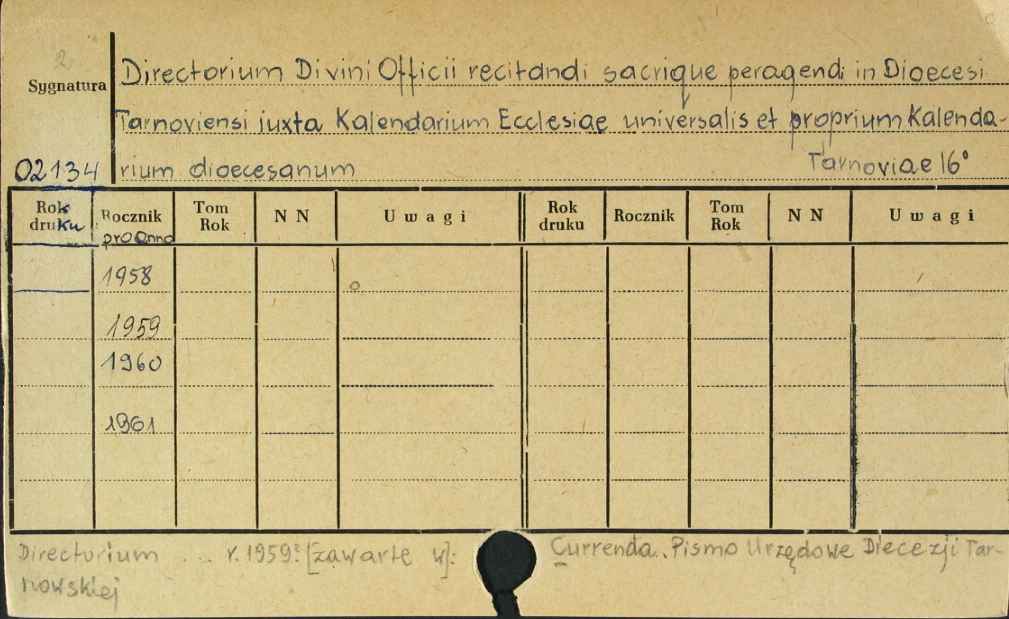 2
Sygnatura
Directorium Divini Officii recitandi sacrique peragendi in Dioecesi
Tarnoviensi iuxta Kalendarium Ecclesiae universalis et proprium Kalenda-
02134 rium dioecesanum Tarnoviae 16°
Rok druku Rocznik pro anno Tom Rok N N Uwagi Rok druku Rocznik Tom Rok N N Uwagi
1958
1959
1960
1961
Directorium ... r. 1959: [zawarte w]: Currenda. Pismo Urzędowe Diecezji Tar-
nowskiej